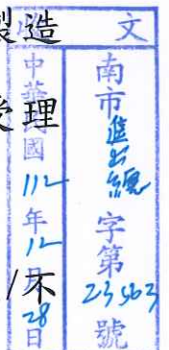 製造
受理
/不
文
南市進出總字第23563號
中華民國112年12月28日